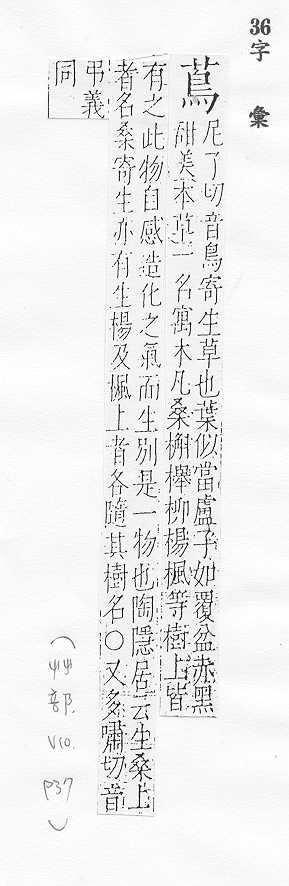 36字彙
蔦
尼了切音鳥寄生草也葉似當盧子如覆盆赤黑
甜美本草一名寓木凡桑槲櫸柳楊楓等樹上皆
有之此物自感造化之氣而生別是一物也陶隱居云生桑上
者名桑寄生亦有生楊及楓上者各隨其樹名○又多嘯切音
弔義
同
(艸部. V10. P37)